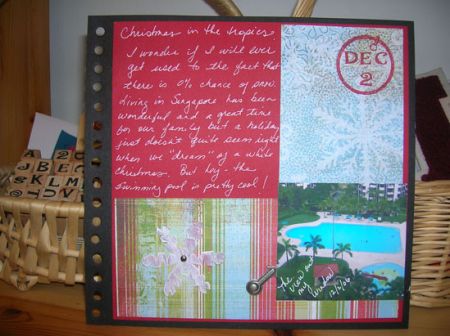 Christmas in the tropics.
I wonder if I will ever
get used to the fact that
there is 0% chance of snow.
Living in Singapore has been
wonderful and a great time
for our family but a holiday
just doesn't quite seem right
when we "dream" of a white
Christmas. But hey - the
swimming pool is pretty cool!
DEC
2
The
view out
my
window
12/6/06
A 2
B C
K L M
T U V